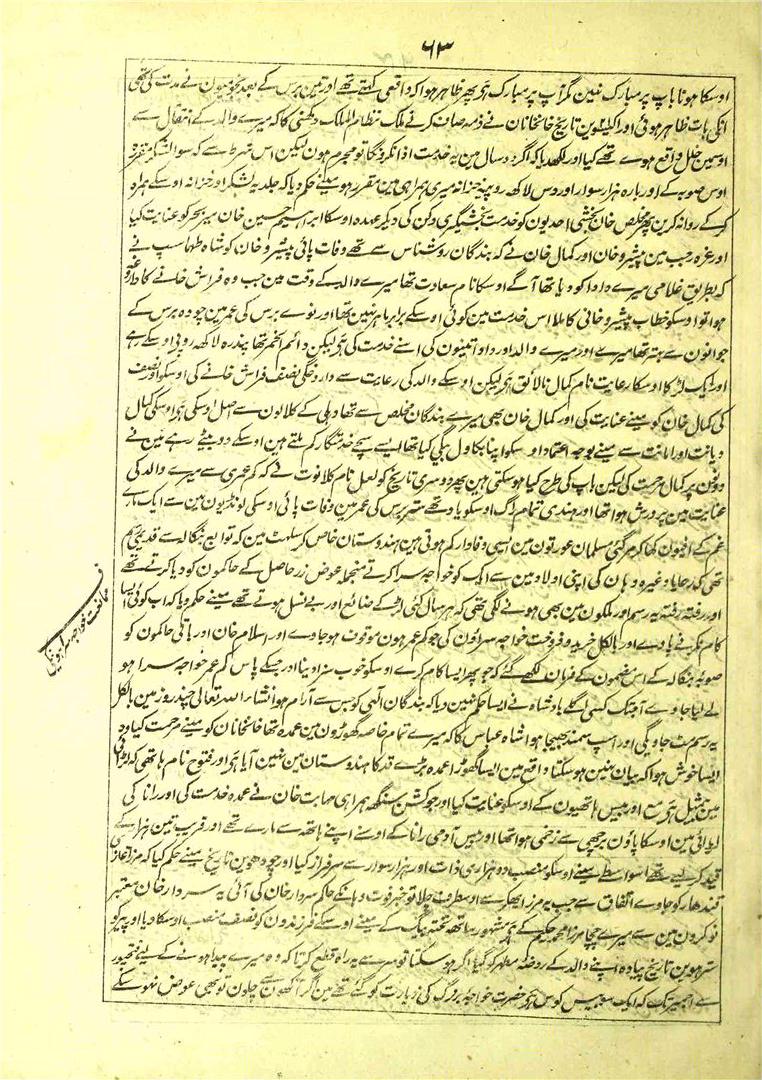 ۶۳
اوسکا ہونا باپ پر مبارک نہین مگر آپ پر مبارک ہی پھر ظاہر ہوا کہ واقعی کہتے تھے اور تین برس کے بعد نجومیون نے مدت کی تھی
انکی بات ظاہر ہوئی اور اکیسوین تاریخ خانخانان نے ذمہ صاف کرنے ملک نظام الملک دکھنی کا کہ میرے والد کے انتقال سے
اوسمین خلل واقع ہوے تھے کیا اور لکھدیا کہ اگر دو سال مین یہ خدمت ادا نکرونگا تو مجرم ہون لیکن اس شرط سے کہ سوا لشکر مقررہ
اوس صوبہ کے اور بارہ ہزار سوار اور دس لاکھ روپیہ خزانہ میری ہمراہی مین مقرر ہو مینے حکم دیا کہ جلد یہ لشکر اور خزانہ اوسکے ہمراہ
کر کے روانہ کرین پھر مخلص خان بخشی احدیون کو خدمت بخشیگری دکن کی دیکر عہدہ اوسکا ابراہیم حسین خان میر بحر کو عنایت کیا
اور غرہ رجب مین پیشرو خان اور کمال خان نے کہ بندگان روشناس سے تھے وفات پائی پیشرو خان کو شاہ طہماسپ نے
کہ بطریق غلامی میرے دادا کو دیا تھا آگے اوسکا نام سعادت تھا میرے والد کے وقت مین جب وہ فراش خانے کا داروغہ
ہوا تو اوسکو خطاب پیشرو خانی کا ملا اس خدمت مین کوئی اوسکے برابر ماہر نہین تھا اور نوے برس کی عمر مین چودہ برس کے
جوانون سے بہتر تھا میرے اور میرے والد اور دادا تینون کی اسنے خدمت کی ہی لیکن دائم الخمر تھا پندرہ لاکھ روپی اوسکے رہے
اور ایک لڑکا اوسکا رعایت نام کمال نالائق ہی لیکن اوسکے والد کی رعایت سے داروغگی نصف فراش خانے کی اوسکو اور نصف
کی کمال خان کو مینے عنایت کی اور کمال خان بھی میرے بندگان مخلص سے تھا دہلی کے کلالون سے اصل اوسکی ہی اوسکی کمال
دیانت اور امانت سے مینے بوجہ اعتماد اوسکو اپنا بکاول بیگی کیا تھا ایسے سچے خدمتگار کم ملتے ہین اوسکے دو بیٹے رہے مین نے
دونون پر کمال مرحمت کی لیکن باپ کی طرح کیا ہوسکتی ہین پھر دوسری تاریخ کو لعل نام کلانوت نے کہ کم عمری سے میرے والد کی
عنایت مین پرورش ہوا تھا اور ہندی تمام راگ اوسکو یاد تھے ستر برس کی عمر مین وفات پائی اوسکی لونڈیون مین سے ایک مارے
غم کے افیون کھا کر مر گئی مسلمان عورتون مین ایسی وفادار کم ہوتی ہین ہندوستان خاص کر سلہٹ مین کہ توابع بنگالہ سے قدیمی رسم
تھی کہ رعایا وغیرہ وہان کی اپنی اولاد مین سے ایک کو خواجہ سرا کرتے منجملہ عوض زر حاصل کے حاکمون کو دیا کرتے تھے
اور رفتہ رفتہ یہ رسم اور ملکون مین بھی ہونے لگی تھی کہ ہر سال کئی لڑکے ضائع اور بے نسل ہوتے تھے مینے حکم دیا کہ اب کوئی ایسا
کام نکرنے پاوے اور بالکل خرید و فروخت خواجہ سراؤن کی جو کم عمر ہون موقوف ہوجاوے اور اسلام خان اور باقی حاکمون کو
صوبہ بنگالہ کے اس مضمون کے فرمان لکھے گئے کہ جو پھر ایسا کام کرے اوسکو خوب سزا دینا اور جسکے پاس کم عمر خواجہ سرا ہو
لے لیا جاوے آجتک کسی اگلے بادشاہ نے ایسا حکم نہین دیا کہ بندگان الہی کو جس سے آرام ہو انشاء اللہ تعالی چند روز مین بالکل
یہ رسم مٹ جاویگی اور اسپ سمند بھیجا ہوا شاہ عباس کا کہ میرے تمام خاصہ گھوڑون مین عمدہ تھا خانخانان کو مینے مرحمت کیا وہ
ایسا خوش ہوا کہ بیان نہین ہوسکتا واقع مین ایسا گھوڑا عمدہ بڑے قد کا ہندوستان مین نہین آیا ہی اور فتوح نام ہاتھی کہ لڑائی
مین بیمثل ہی مع اور بیس ہاتھیون کے اوسکو عنایت کیا اور جو کشن سنگھ ہمراہی مہابت خان نے عمدہ خدمت کی اور رانا کی
لڑائی مین اوسکا پاؤن برچھی سے زخمی ہوا تھا اور بیس آدمی رانا کے اوسنے اپنے ہاتھ سے مارے تھے اور قریب تین ہزار کے
قید کر لیے تھے اسواسطے مینے اوسکو منصب دو ہزاری ذات اور ہزار سوار سے سرفراز کیا اور چودھوین تاریخ مینے حکم کیا کہ مرزا غازی
قندھار کو جاوے اتفاق سے جب یہ مرزا بھکر سے اوسطرف چلا تو خبر فوت وہانکے حاکم سردار خان کی آئی یہ سردار خان معتبر
نوکرون مین سے میرے چچا مرزا محمد حکیم کے ہی مشہور ساتھ تختہ بیگ کے مینے اوسکے فرزندون کو نصف منصب اوسکا دیا اور پیر کو
سترھوین تاریخ پیادہ اپنے والد کے روضہ مطہر کو گیا اگر ہوسکتا تو سر سے یہ راہ قطع کرتا کہ وہ میرے پیدا ہونے کے لیے فتحپور
سے اجمیر تک کہ ایک سو بیس کوس ہی حضرت خواجہ بزرگ کی زیارت کو گئے تھے مین اگر آنکھون سے چلون تو بھی عوض نہو سکے
ممانعت خواجہ سرا ہونیکی